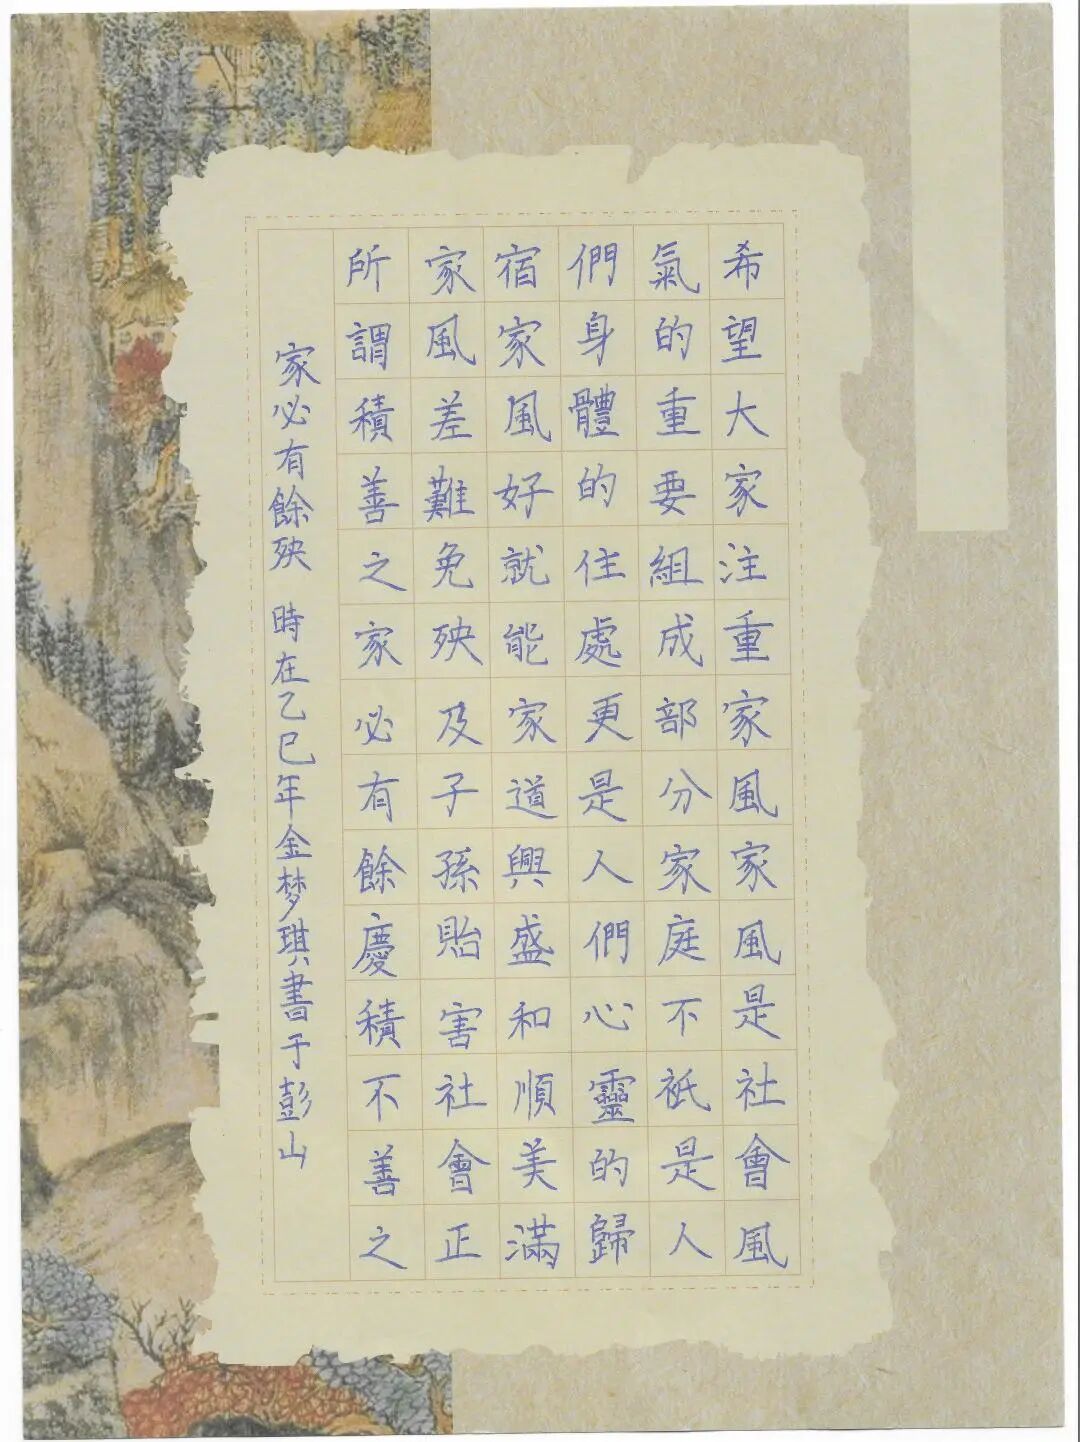 希望大家注重家風家風是社會風
氣的重要組成部分家庭不衹是人
們身體的住處更是人們心靈的歸
宿家風好就能家道興盛和順美滿
家風差難免殃及子孫貽害社會正
所謂積善之家必有餘慶積不善之
家必有餘殃 時在乙巳年金梦琪書于彭山